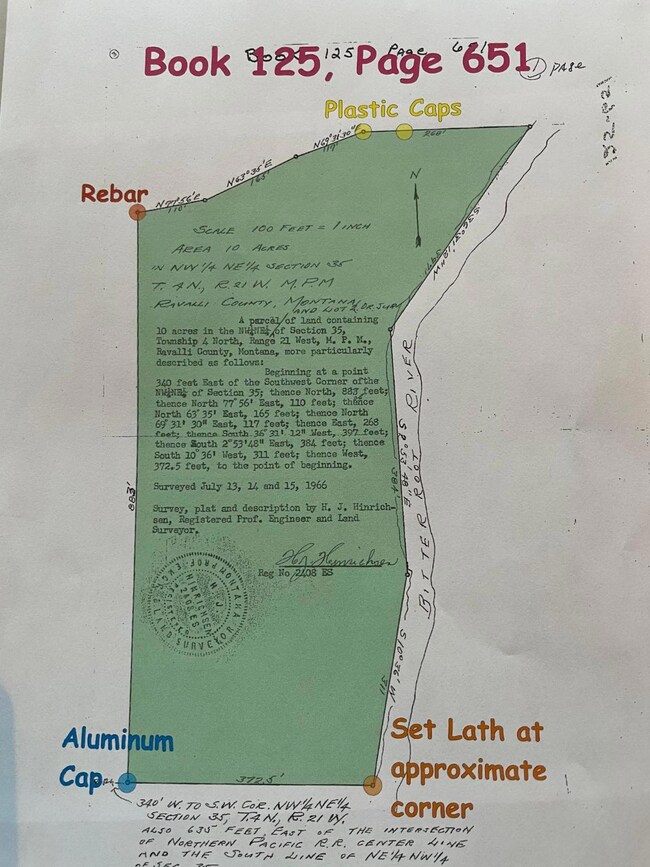 BOOK 125 PAGE 651
Book 125, Page 651
1 PAGE
Plastic Caps
N 69°31'30" E
117'
268'
N 63°35' E
165'
Rebar
N 77°56' E
110'
N
SCALE 100 FEET = 1 INCH
AREA 10 ACRES
IN NW 1/4 NE 1/4 SECTION 35
T. 4 N., R 21 W. M. P. M
RAVALLI COUNTY, MONTANA
AND LOT 2
A parcel of land containing
10 acres in the NW¼NE¼ of Section 35,
Township 4 North, Range 21 West, M. P. M.,
Ravalli County, Montana, more particularly
described as follows:
Beginning at a point
340 feet East of the Southwest Corner of the
NW¼NE¼ of Section 35; thence North, 883 feet;
thence North 77°56' East, 110 feet; thence
North 63°35' East, 165 feet; thence North
69°31'30" East, 117 feet; thence East, 268
feet; thence South 36°31'12" West, 397 feet;
thence South 2°53'48" East, 384 feet; thence
South 10°36' West, 311 feet; thence West,
372.5 feet, to the point of beginning.
Surveyed July 13, 14 and 15, 1966
Survey, plat and description by H. J. Hinrich-
sen, Registered Prof. Engineer and Land
Surveyor.
H J Hinrichsen
Reg No 2408 ES
MONTANA
H. J.
HINRICHSEN
2408 ES
REGISTERED
PROF. ENG.
& LAND SURVEYOR
S 36°31'12" W
397'
S 2°53'48" E
384'
BITTER ROOT RIVER
S 10°36' W
311'
883'
Aluminum
Cap
372.5'
Set Lath at
approximate
corner
340' W. TO S.W. COR. NW 1/4 NE 1/4
SECTION 35, T. 4 N., R. 21 W.
ALSO 635 FEET, EAST OF THE INTERSECTION
OF NORTHERN PACIFIC R.R. CENTER LINE
AND THE SOUTH LINE OF NE 1/4 NW 1/4
OF SEC. 35